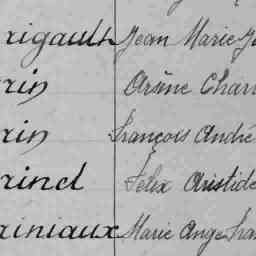 rigault Jean Marie J
rin Arsène Char
rin François André
rind Félix Aristide
riniaux Marie Ange